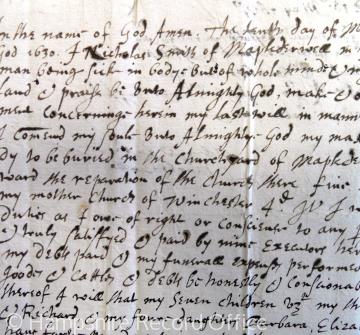 In the name of God Amen. The tenth day of M
God 1630. I Nicholas Smith of Mapledurwell in
man being sick in bodye but of whole minde &
laud & praise be unto Almighty God, make & o
ment concerninge herein my last will in mann
I comend my soule unto Almighty God my ma
dy to be buried in the Churchyard of Maple
ward the reparation of the Church there five
my mother Church of Winchester 4d. It I
duties as I owe of right or conscience to any
& truly satisfyed & paid by mine executors here
my debts paid & my funerall expenses performe
Goods & Cattles & debts be honestly & consionab
thereof I will that my Seven children vzt my th
& Richard & my four daughters Barbara, Eliz
© Hampshire Record Office